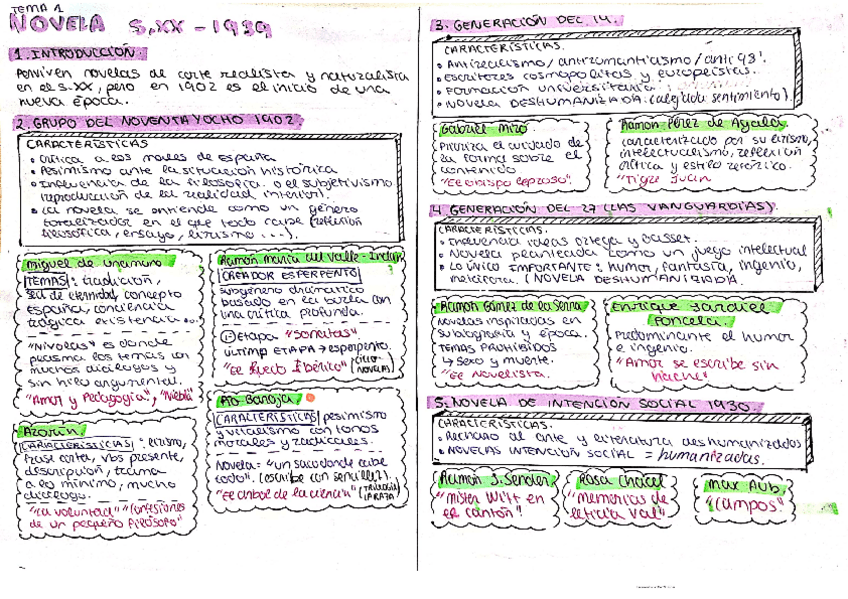 TEMA 1
NOVELA S.XX - 1939
1. INTRODUCCIÓN
Perviven novelas de corte realista y naturalista
en el s.XX, pero en 1902 es el inicio de una
nueva época.
2. GRUPO DEL NOVENTAYOCHO 1902
CARACTERÍSTICAS
• Crítica a los males de España
• Pesimismo ante la situación histórica
• Influencia de la filosofía o el subjetivismo
reproducción de la realidad interior.
• La novela se entiende como un género
totalizador, en el que todo cabe (reflexión
filosófica, ensayo, lirismo ...).
Miguel de Unamuno
TEMAS: tradición,
sed de eternidad, concepto
España, conciencia
trágica existencia...
"Nivolas" es donde
plasma los temas con
muchos diálogos y
sin hilo argumental.
"Amor y Pedagogía", "Niebla"
Azorín
CARACTERÍSTICAS: lirismo,
frase corta, vbos presente,
descripción, trama
a lo mínimo, mucho
diálogo.
"La voluntad" "Confesiones
de un pequeño filósofo"
Ramón María del Valle-Inclán
CREADOR ESPERPENTO
subgénero dramático
basado en la burla con
una crítica profunda.
1ª Etapa "Sonatas"
última ETAPA → esperpento.
"El Ruedo Ibérico" (CICLO
NOVELAS)
Pío Baroja
CARACTERÍSTICAS pesimismo
y vitalismo con tonos
morales y radicales.
Novela = "un saco donde cabe
todo". (escribe con sencillez).
"El árbol de la ciencia" (TRILOGÍA
LA RAZA)
3. GENERACIÓN DEL 14.
CARACTERÍSTICAS.
• Antirrealismo/antirromanticismo/anti 98'.
• Escritores cosmopolitas y europeístas.
• Formación universitaria
• NOVELA DESHUMANIZADA (alejada sentimiento).
Gabriel Miró.
Prioriza el cuidado de
la forma sobre el
contenido
"El obispo leproso".
Ramón Pérez de Ayala.
Caracterizado por su lirismo,
intelectualismo, reflexión
crítica y estilo retórico.
"Tigre Juan"
4. GENERACIÓN DEL 27 (LAS VANGUARDIAS).
CARACTERÍSTICAS.
• Influencia ideas Ortega y Gasset.
• Novela planteada como un juego intelectual
• Lo único IMPORTANTE: humor, fantasía, ingenio,
metáfora. (NOVELA DESHUMANIZADA.
Ramón Gómez de la Serna
Novelas inspiradas en
su biografía y época.
TEMAS PROHIBIDOS
↳ sexo y muerte.
"El Novelista.
Enrique Jardiel
Poncela.
Predominante el humor
e ingenio.
"Amor se escribe sin
hache"
5. NOVELA DE INTENCIÓN SOCIAL 1930.
CARACTERÍSTICAS.
• Rechazo al arte y literatura deshumanizados
• NOVELAS INTENCIÓN SOCIAL = humanizadas.
Ramón J. Sender.
"Mister Witt en
el cantón"
Rosa Chacel
"Memorias de
Leticia Val"
Max Aub,
"Campos"